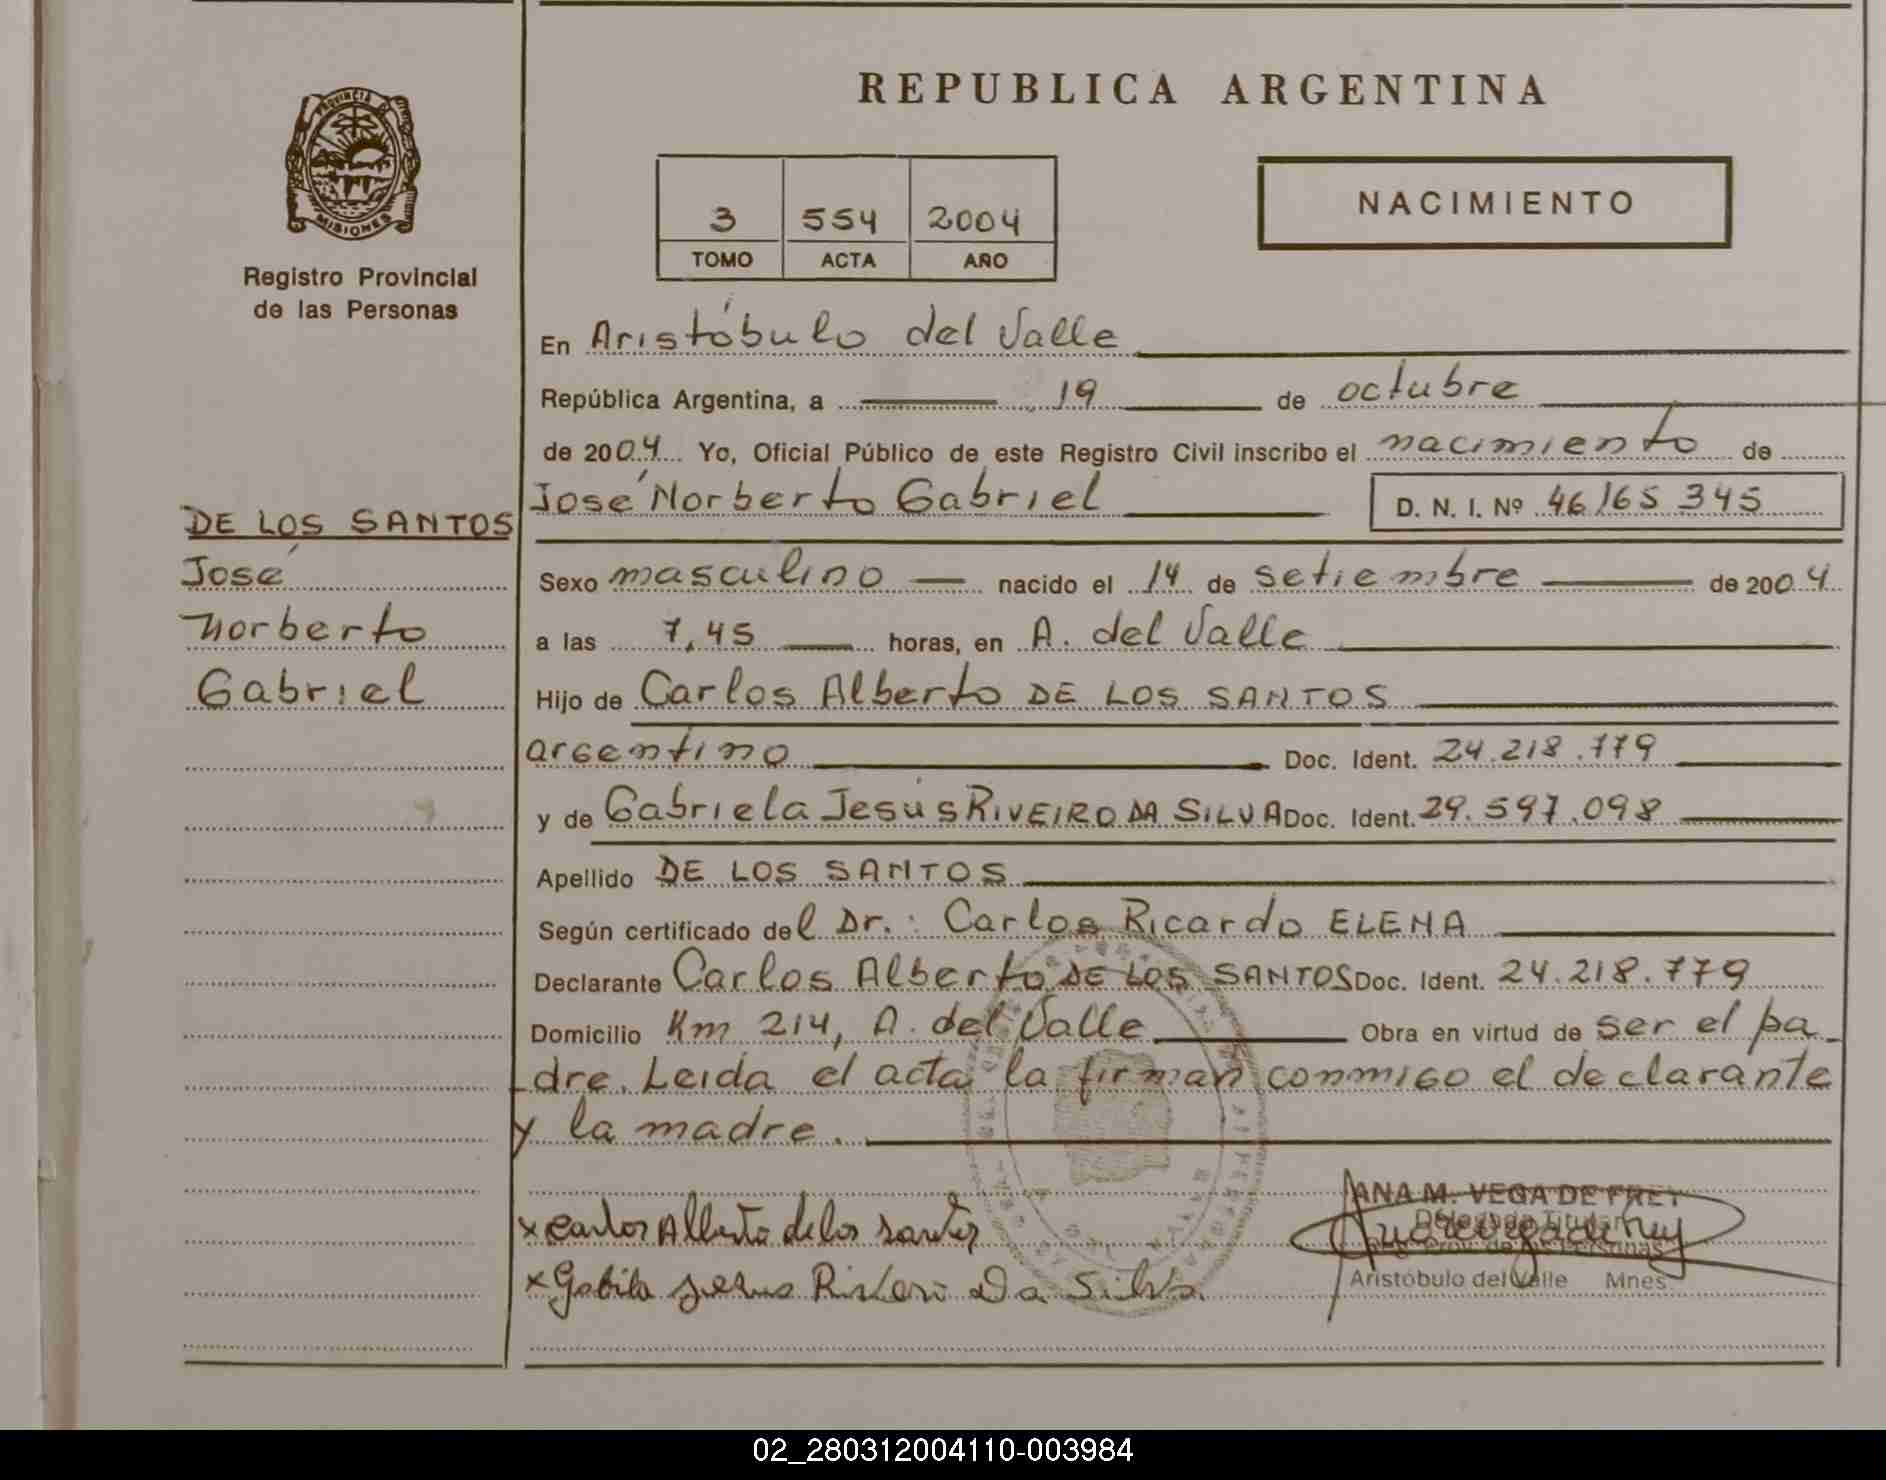 PROVINCIA DE
MISIONES
Registro Provincial
de las Personas
DE LOS SANTOS
José
Norberto
Gabriel
REPUBLICA ARGENTINA
3 554 2004
TOMO ACTA AÑO
NACIMIENTO
En Aristóbulo del Valle
República Argentina, a 19 de octubre
de 2004 Yo, Oficial Público de este Registro Civil inscribo el nacimiento de
José Norberto Gabriel D. N. I. Nº 46165 345
Sexo masculino nacido el 14 de setiembre de 2004
a las 7,45 horas, en A. del Valle
Hijo de Carlos Alberto DE LOS SANTOS
argentino Doc. Ident. 24.218.779
y de Gabriela Jesús RIVEIRO DA SILVA Doc. Ident. 29.597.098
Apellido DE LOS SANTOS
Según certificado del Dr.: Carlos Ricardo ELENA
Declarante Carlos Alberto DE LOS SANTOS Doc. Ident. 24.218.779
Domicilio Km 214, A. del Valle Obra en virtud de ser el pa-
-dre. Leida el acta la firman conmigo el declarante
y la madre.
ANA M. VEGA DE FREY
Delegada Titular
Reg. Prov. de las Personas
Aristóbulo del Valle Mnes
x Carlos Alberto de los santos
x Gabriela Jesus Riveiro Da Silva
02_280312004110-003984